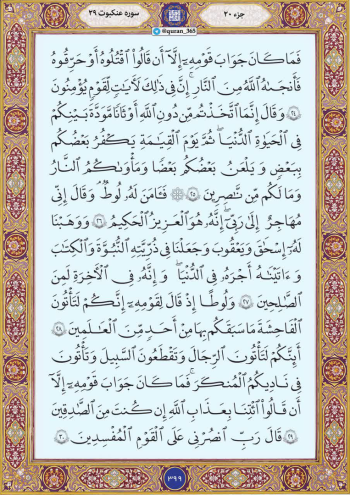 جزء ۲۰
@quran_365
سوره عنکبوت ۲۹
فَمَا كَانَ جَوَابَ قَوْمِهِۦٓ إِلَّآ أَن قَالُوا۟ ٱقْتُلُوهُ أَوْ حَرِّقُوهُ
فَأَنجَىٰهُ ٱللَّهُ مِنَ ٱلنَّارِ ۚ إِنَّ فِى ذَٰلِكَ لَءَايَٰتٍ لِّقَوْمٍ يُؤْمِنُونَ
﴿٢٤﴾ وَقَالَ إِنَّمَا ٱتَّخَذْتُم مِّن دُونِ ٱللَّهِ أَوْثَٰنًا مَّوَدَّةَ بَيْنِكُمْ
فِى ٱلْحَيَوٰةِ ٱلدُّنْيَا ۖ ثُمَّ يَوْمَ ٱلْقِيَٰمَةِ يَكْفُرُ بَعْضُكُم
بِبَعْضٍ وَيَلْعَنُ بَعْضُكُم بَعْضًا وَمَأْوَىٰكُمُ ٱلنَّارُ
وَمَا لَكُم مِّن نَّٰصِرِينَ ﴿٢٥﴾ ۞ فَـَٔامَنَ لَهُۥ لُوطٌ ۘ وَقَالَ إِنِّى
مُهَاجِرٌ إِلَىٰ رَبِّىٓ ۖ إِنَّهُۥ هُوَ ٱلْعَزِيزُ ٱلْحَكِيمُ ﴿٢٦﴾ وَوَهَبْنَا
لَهُۥٓ إِسْحَٰقَ وَيَعْقُوبَ وَجَعَلْنَا فِى ذُرِّيَّتِهِ ٱلنُّبُوَّةَ وَٱلْكِتَٰبَ
وَءَاتَيْنَٰهُ أَجْرَهُۥ فِى ٱلدُّنْيَا ۖ وَإِنَّهُۥ فِى ٱلْءَاخِرَةِ لَمِنَ
ٱلصَّٰلِحِينَ ﴿٢٧﴾ وَلُوطًا إِذْ قَالَ لِقَوْمِهِۦٓ إِنَّكُمْ لَتَأْتُونَ
ٱلْفَٰحِشَةَ مَا سَبَقَكُم بِهَا مِنْ أَحَدٍ مِّنَ ٱلْعَٰلَمِينَ ﴿٢٨﴾
أَئِنَّكُمْ لَتَأْتُونَ ٱلرِّجَالَ وَتَقْطَعُونَ ٱلسَّبِيلَ وَتَأْتُونَ
فِى نَادِيكُمُ ٱلْمُنكَرَ ۖ فَمَا كَانَ جَوَابَ قَوْمِهِۦٓ إِلَّآ
أَن قَالُوا۟ ٱئْتِنَا بِعَذَابِ ٱللَّهِ إِن كُنتَ مِنَ ٱلصَّٰدِقِينَ
﴿٢٩﴾ قَالَ رَبِّ ٱنصُرْنِى عَلَى ٱلْقَوْمِ ٱلْمُفْسِدِينَ ﴿٣٠﴾
۳۹۹